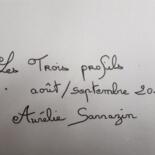 Les Trois profils
août/septembre 20
Aurélie Sarrazin